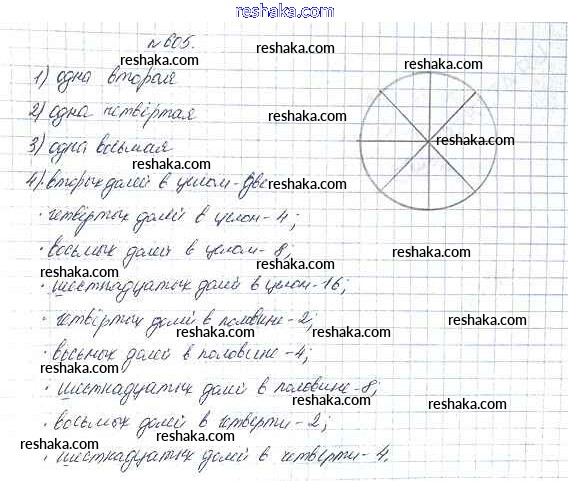 reshaka.com
№605.
reshaka.com
1) одна вторая
reshaka.com
reshaka.com
2) одна четвёртая
reshaka.com
3) одна восьмая
reshaka.com
reshaka.com
4) · вторых долей в целом - две
reshaka.com
· четвёртых долей в целом - 4;
reshaka.com
· восьмых долей в целом - 8;
reshaka.com
reshaka.com
reshaka.com
· шестнадцатых долей в целом - 16;
reshaka.com
· четвёртых долей в половине - 2;
reshaka.com
reshaka.com
· восьмых долей в половине - 4;
reshaka.com
reshaka.com
· шестнадцатых долей в половине - 8;
reshaka.com
reshaka.com
· восьмых долей в четверти - 2;
reshaka.com
reshaka.com
· шестнадцатых долей в четверти - 4.
reshaka.com